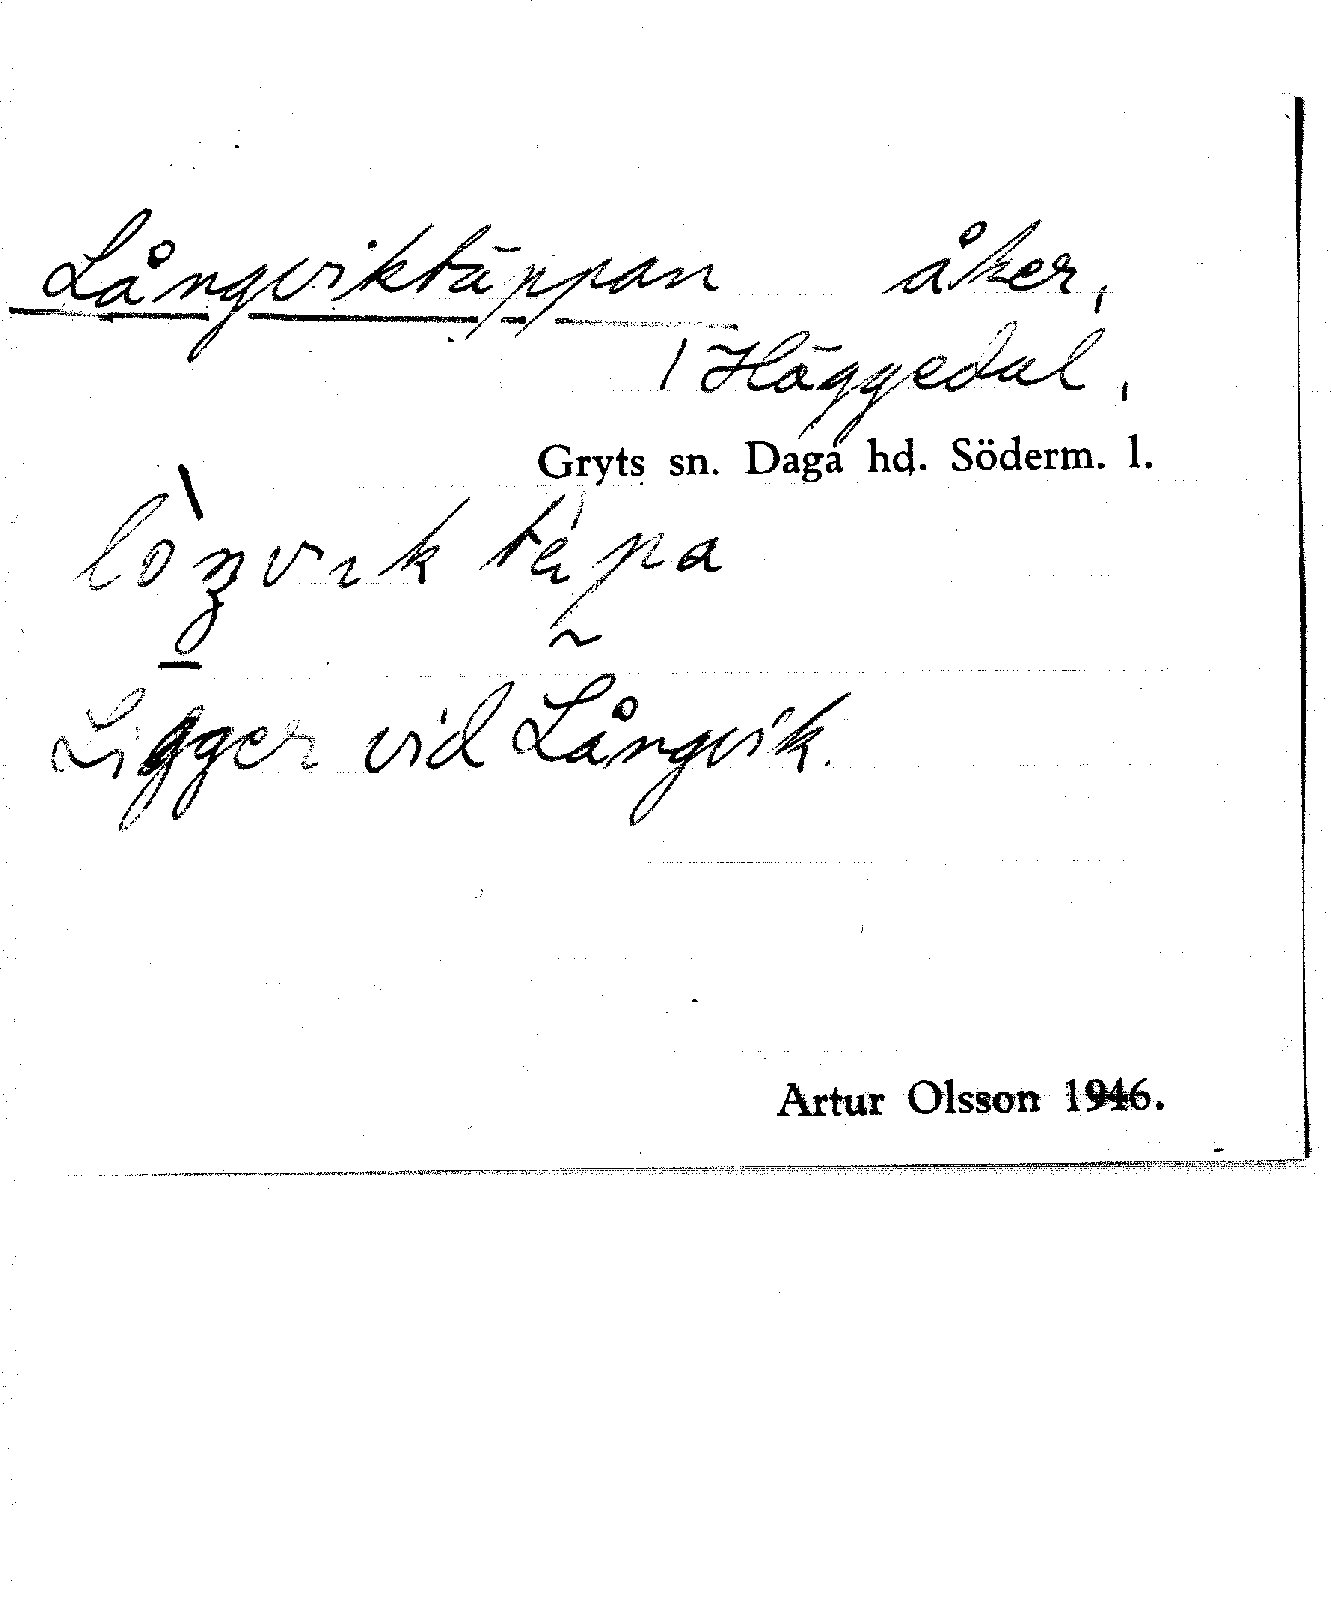 Långviktäppan åker,
1 Häggedal,
Gryts sn. Daga hd. Söderm. l.
Ligger vid Långvik.
Artur Olsson 1946.